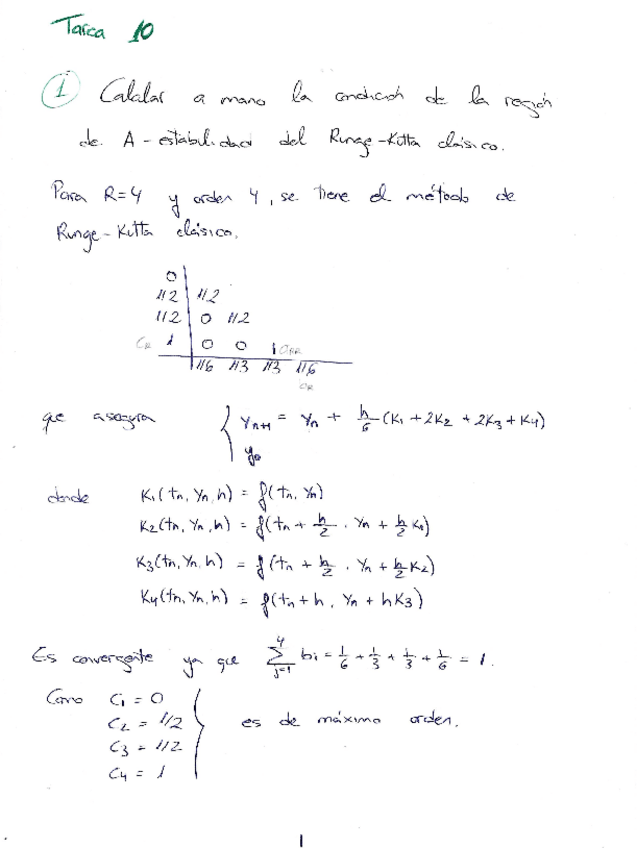 Tarea 10
① Calcular a mano la condición de la región
de A-estabilidad del Runge-Kutta clásico.
Para R=4 y orden 4, se tiene el método de
Runge-Kutta clásico.
0
1/2 1/2
1/2 0 1/2
CR 1 0 0 1
1/6 1/3 1/3 1/6
que asegura { yn+1 = yn + h/6 (K1 + 2K2 + 2K3 + K4)
y0
donde K1(tn, yn, h) = f(tn, yn)
K2(tn, yn, h) = f(tn + h/2, yn + h/2 K1)
K3(tn, yn, h) = f(tn + h/2, yn + h/2 K2)
K4(tn, yn, h) = f(tn + h, yn + hK3)
Es convergente ya que 4 Σ j=1 bi = 1/6 + 1/3 + 1/3 + 1/6 = 1.
Como C1 = 0
C2 = 1/2
es de máximo orden.
C3 = 1/2
C4 = 1
1